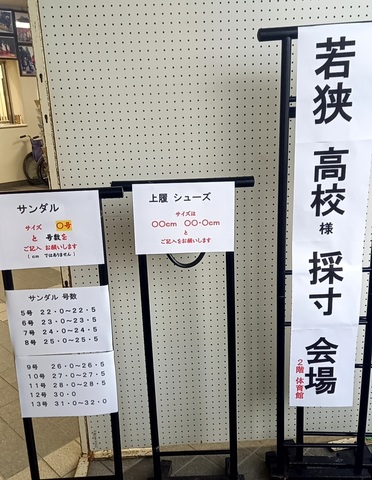 サンダル
サイズ 〇号
と 号数を
ご記入 お願いします
(cm ではありません)
サンダル 号数
5号 22.0〜22.5
6号 23.0〜23.5
7号 24.0〜24.5
8号 25.0〜25.5
9号 26.0〜26.5
10号 27.0〜27.5
11号 28.0〜28.5
12号 30.0
13号 31.0〜32.0
上履 シューズ
サイズは
〇〇cm 〇〇.〇cm
と
ご記入をお願いします
若狭 高校様 採寸 会場
2階 体育館